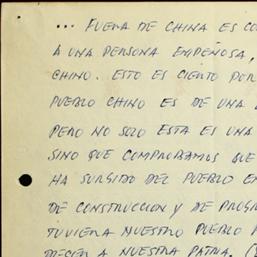 ... FUERA DE CHINA ES CO
A UNA PERSONA EMPEÑOSA,
CHINO. ESTO ES CIERTO POR
PUEBLO CHINO ES DE UNA
PERO NO SOLO ESTA ES UNA
SINO QUE COMPROBAMOS QUE
HA SURGIDO DEL PUEBLO EN
DE CONSTRUCCION Y DE PROGR
TUVIERA NUESTRO PUEBLO
DECIA A NUESTRA PATRIA.